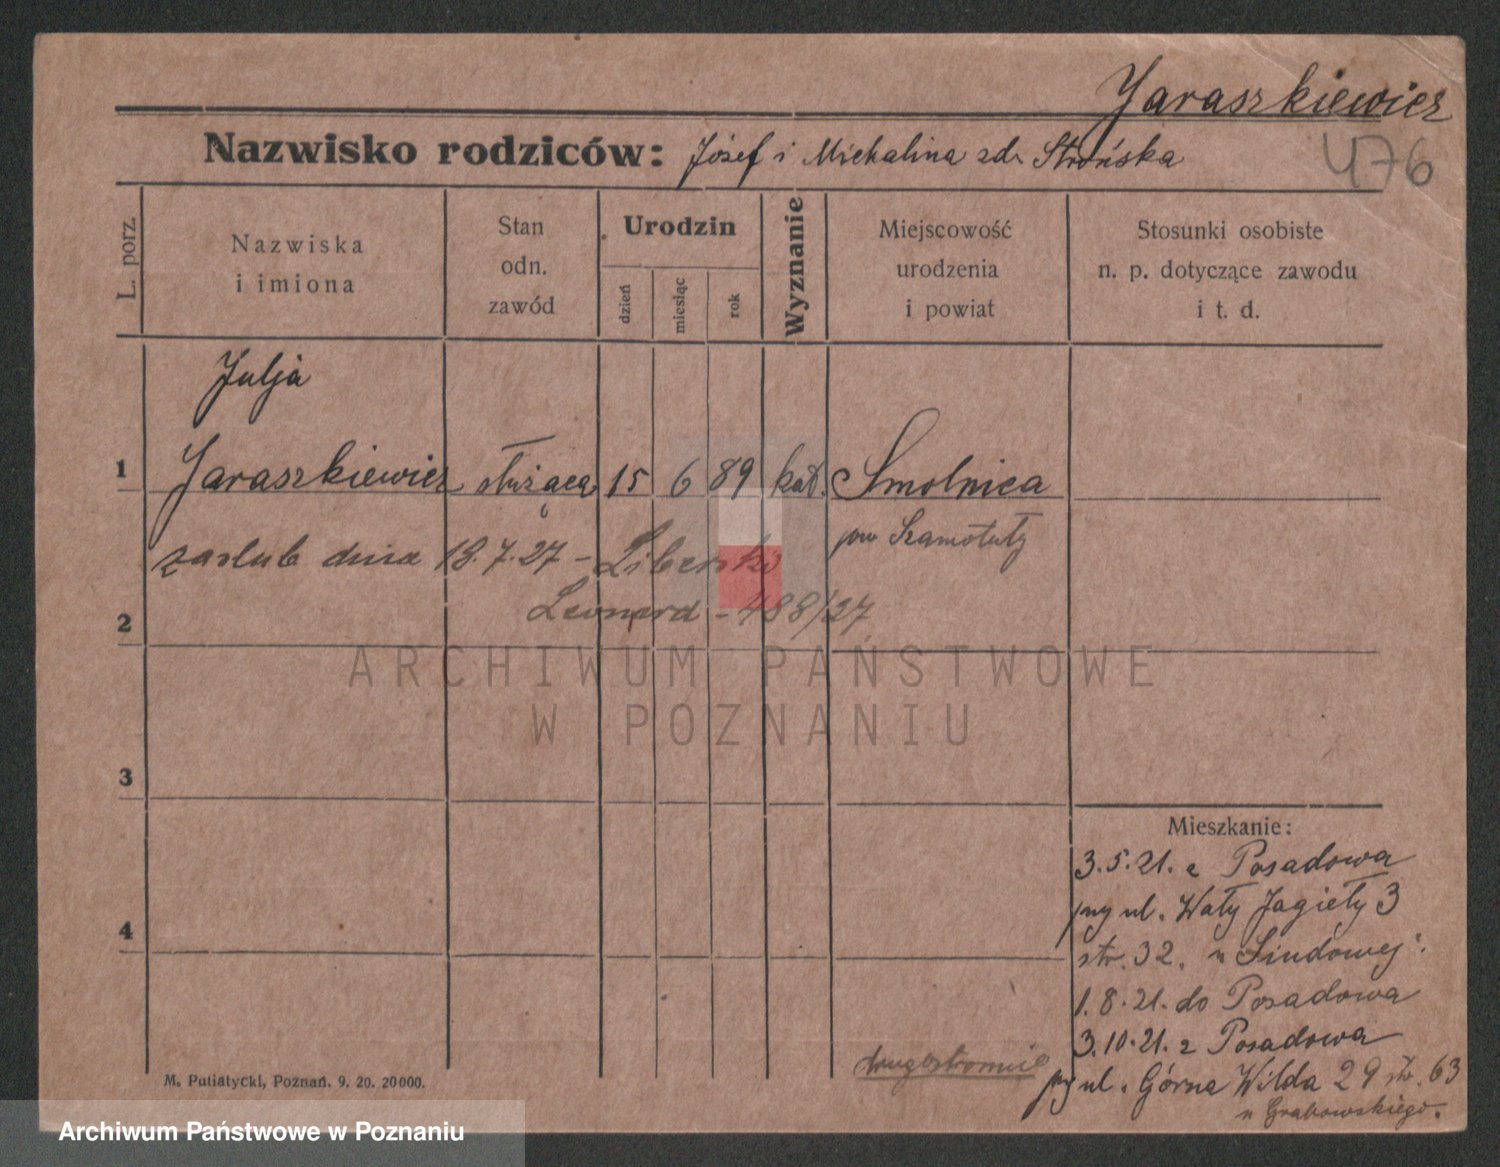 Jaraszkiewicz
Nazwisko rodziców: Józef i Michalina zd. Strońska
476
L. porz.
Nazwiska
i imiona
Stan
odn.
zawód
Urodzin
dzień
miesiąc
rok
Wyznanie
Miejscowość
urodzenia
i powiat
Stosunki osobiste
n. p. dotyczące zawodu
i t. d.
Julja
1 Jaraszkiewicz służąca 15 6 89 kat. Smolnica
pow Szamotuły
zaślub dnia 18.7.27 - Liberski
Leonard - 488/27
2
ARCHIWUM PAŃSTWOWE
W POZNANIU
3
4
Mieszkanie:
3.5.21. z Posadowa
przy ul. Wały Jagiełły 3
str. 32. u
1.8.21. do Posadowa
3.10.21. z Posadowa
przy ul. Górna Wilda 29 str. 63
u Grabowskiego.
drugostronnie
M. Putiatycki, Poznań. 9. 20. 20000.
Archiwum Państwowe w Poznaniu